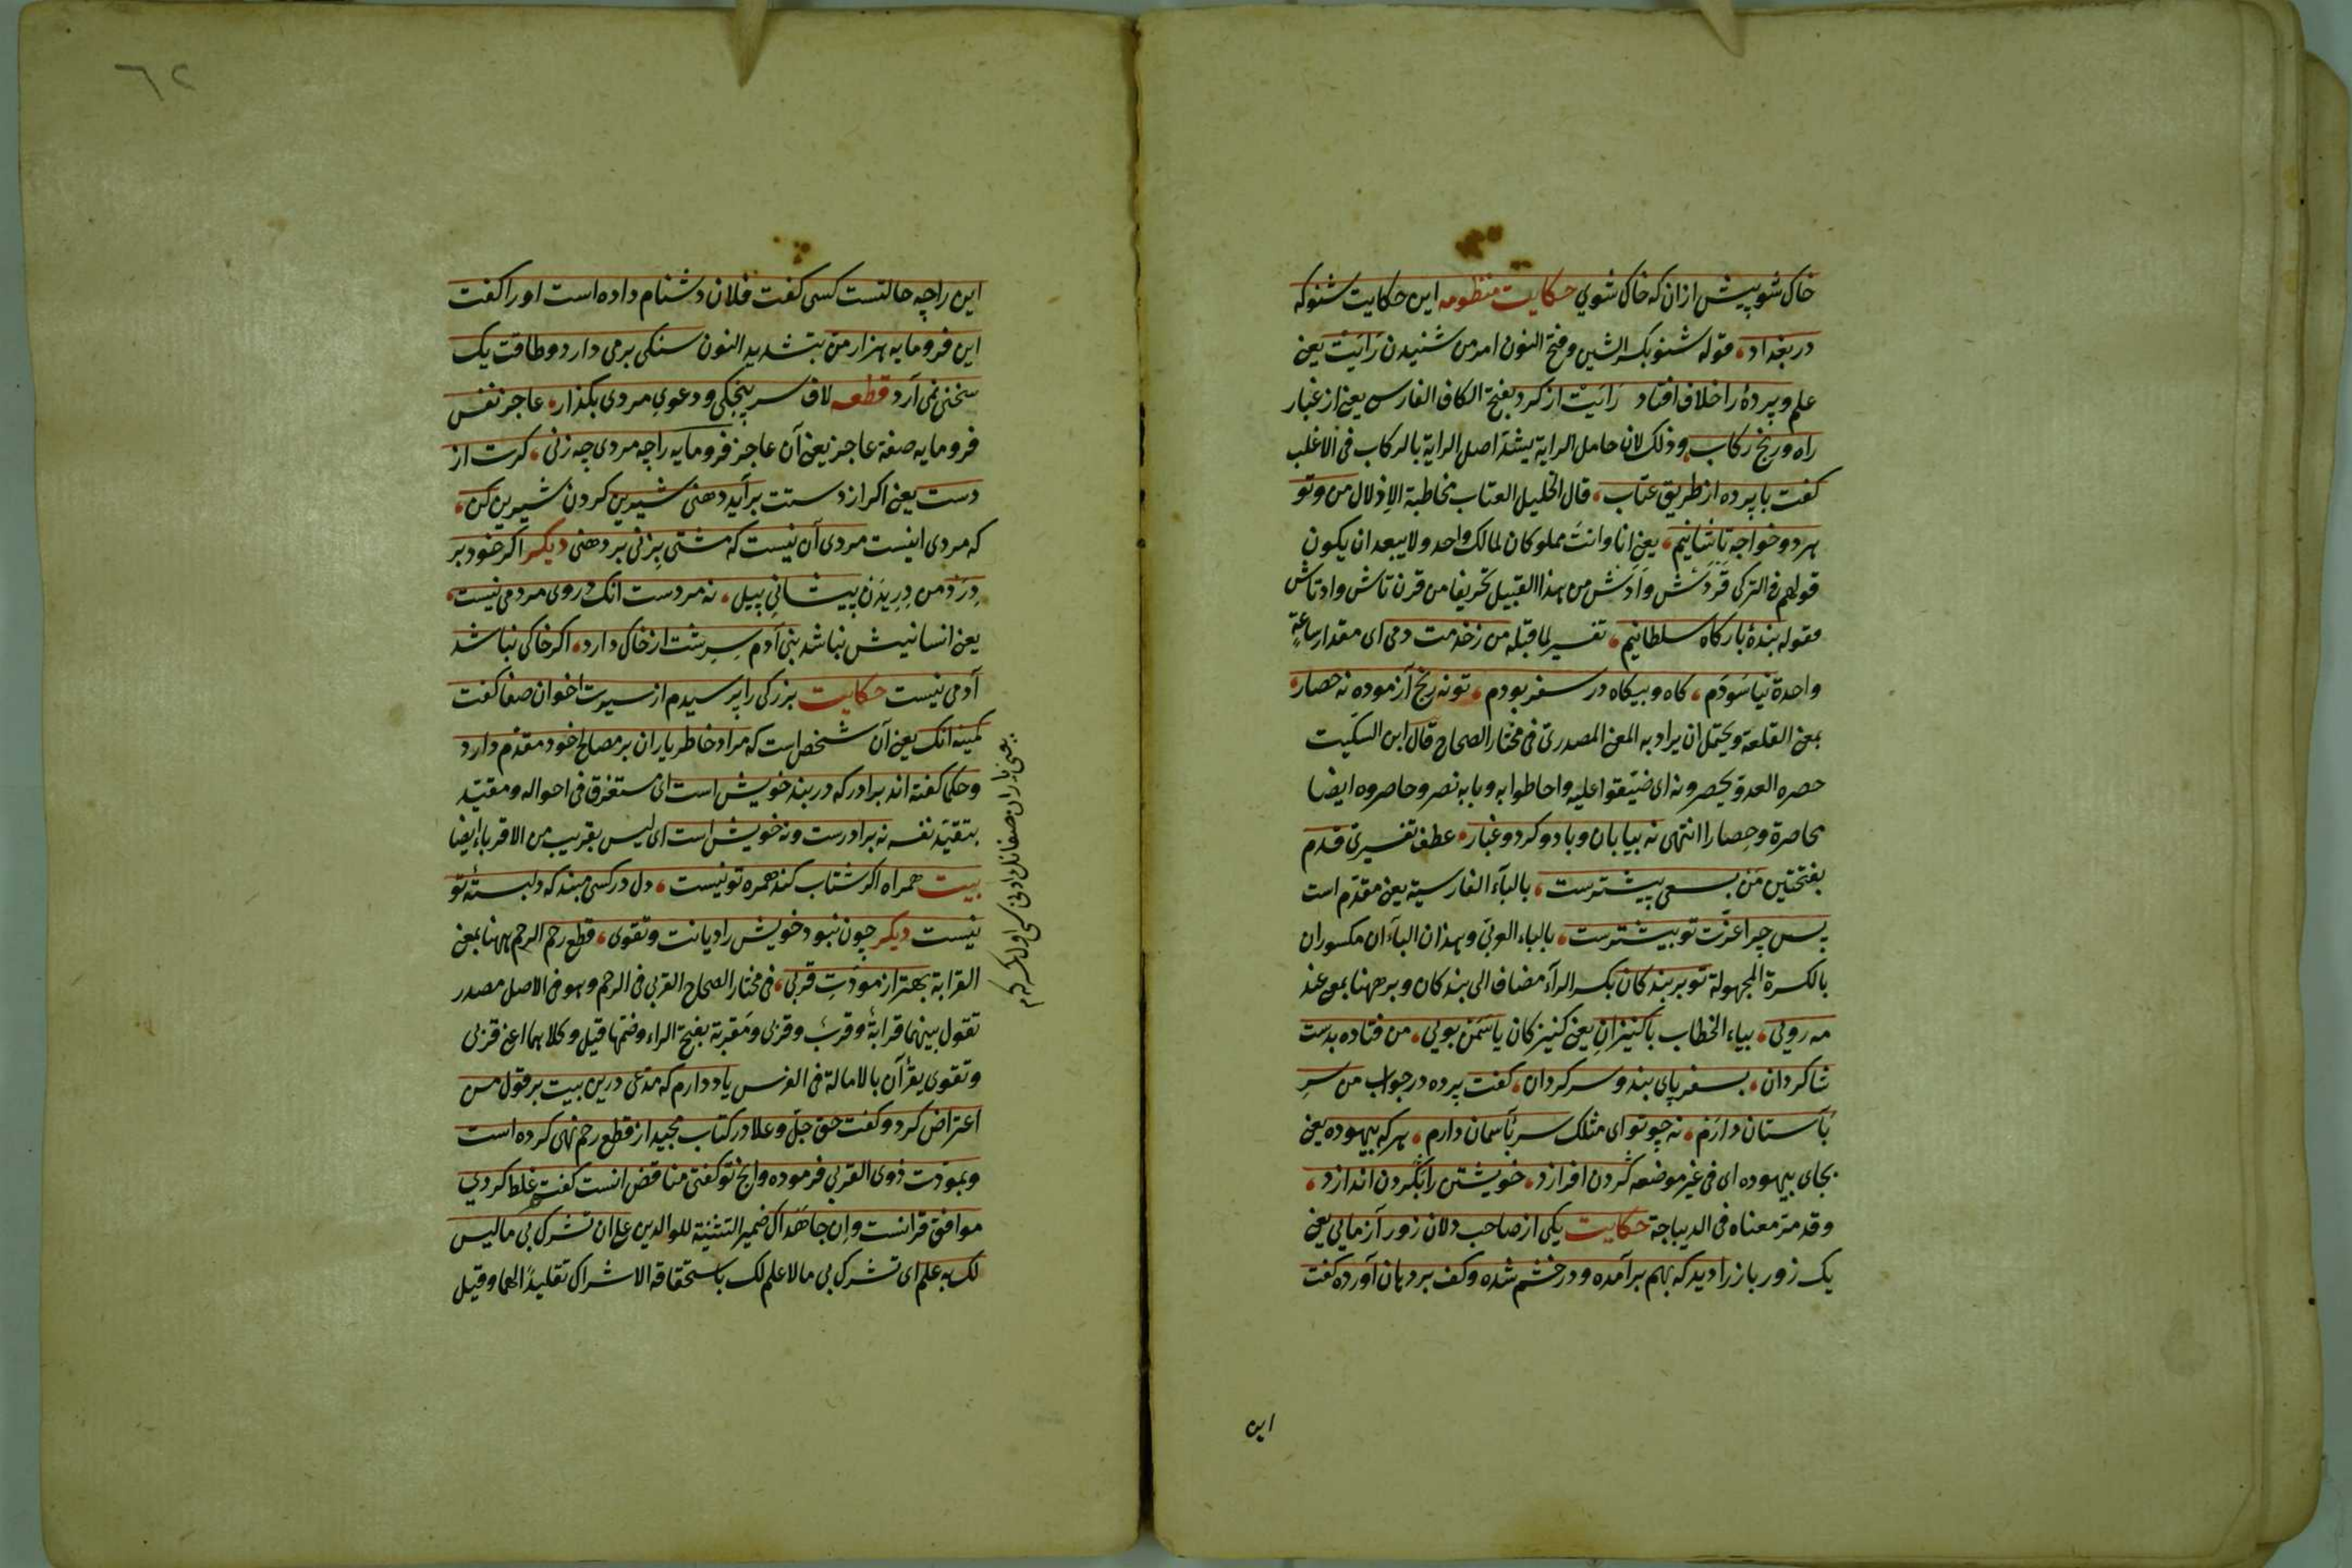 خاک شو پیش ازان که خاک شوی حکایت منظومه این حکایت شنو که
در بغداد، قوله شنو بکسر الشین وفتح النون امر من شنیدن رَایَتْ یعنی
علم وپردهٔ را خلاف افتاد رَایَتْ از کرد بفتح الکاف الفارسی یعنی از غبار
راه ورنج رکاب، وذلک لان حامل الرایة یشدّ اصل الرایة بالرکاب فی الاغلب
کفت با پرده از طریق عتاب، قال الخلیل العتاب مخاطبة الاذلال من وتو
هر دو خواجه تاشانیم، یعنی انا وانتَ مملوکان لمالک واحد ولا یبعد ان یکون
قولهم فی الترکی قَرَدَش وَاَدَش من هذا القبیل تحریفا من قرن تاش واد تاش
مقوله بندهٔ بارکاه سلطانیم، تفسیر لما قبله من زخدمت دمی ای مقدار ساعةٍ
واحدة نیاسودم، کاه وبیکاه در سفر بودم، تو نه رنج آزموده نه حصار،
بمعنی القلعة ویحتمل ان یراد به المعنی المصدری فی مختار الصحاح قال ابن السکّیت
حصره العدوّ یحصرونه ای ضیّقوا علیه واحاطوا به وبابه نصر وحاصروه ایضا
محاصرة وحِصارا انتهی نه بیابان وباد وکرد وغبار، عطف تفسیری قدم
بفتحتین من بسعی پیشترست، بالبآء الفارسیة یعنی مقدّم است
پس چرا عزّت تو بیشترست، بالباء العربیّ وهذان البآءان مکسوران
بالکسرة المجهولة تو بر بندکان بکسر الرآء مضاف الی بندکان وبر ههنا بمعنی عند
مه رویی، بیاء الخطاب با کنیزانِ یعنی کنیزکان یاسَمَن بویی، من فتاده بدست
شاکردان، بسفر پای بند وسرکردان، کفت پرده در جواب من سرِ
بآستان دارم، نه چو تو ای مثلک سر بآسمان دارم، هر که بیهوده یعنی
بجای بیهوده ای فی غیر موضعه کردن افرازد، خویشتن را بکردن اندازد،
وقد مرّ معناه فی الدیباجة حکایت یکی از صاحب دلان زور آزمایی یعنی
یک زور باز را دید که بهم برآمده ودر خشم شده وکف بر دهان آورده کفت
این
٦٢
این را چه حالتست کسی کفت فلان دشنام داده است او را کفت
این فرومایه هزار من بتشدید النون سنکی برمی دارد وطاقت یک
سخنی نمی آرد قطعه لاف سرپنجکی ودعوی مردی بکذار، عاجز نفس
فرومایه صفة عاجز یعنی آن عاجز فرومایه را چه مردی چه زنی، کرت از
دست یعنی اکر از دستت برآید دهنی شیرین کردن شیرین کن،
که مردی اینست مردی آن نیست که مشتی بزنی بر دهنی دیکر اکر خود بر
دِرَد من دِریدن پیشانی پیل، نه مردست انک در وی مردمی نیست،
یعنی انسانیتش نباشد بنی آدم سرِشت از خاک دارد، اکر خاکی نباشد
آدمی نیست حکایت بزرکی را پرسیدم از سیرت اخوان صفا کفت
کمینه انک یعنی آن شخص است که مراد خاطر یاران بر مصالح خود مقدّم دارد
وحکما کفته اند برادر که در بند خویش است ای مستغرق فی احواله ومقیّد
بتقیّد نفسه نه برادرست ونه خویش است ای لیس بقریب من الاقرباء ایضا
بیت همراه اکر شتاب کند همره تو نیست، دل در کسی مبند که دلبستهٔ تو
نیست دیکر چون نبود خویش را دیانت وتقوی، قطع رحم الرحم ههنا بمعنی
القرابة بهتر از مودّتِ قربی، فی مختار الصحاح القربی فی الرحم وهو فی الاصل مصدر
تقول بینهما قرابةٌ وقربٌ وقربی ومَقربة بفتح الراء وضمّها قیل وکلاهما اعنی قربی
وتقوی یقرآن بالامالة فی الفرس یاد دارم که مدّعی درین بیت بر قول من
اعتراض کرد وکفت حق جلّ وعلا در کتاب مجید از قطع رحم نهی کرده است
وبمودّت ذوی القربی فرموده وانچ تو کفتی مناقض انست کفتم غلط کردی
موافق قرانست وان جاهداک ضمیر التثنیة للوالدین علی ان تشرک بی ما لیس
لک به علم ای تشرک بی ما لا علم لک باستحقاقه الاشراک تقلیدًا لهما وقیل